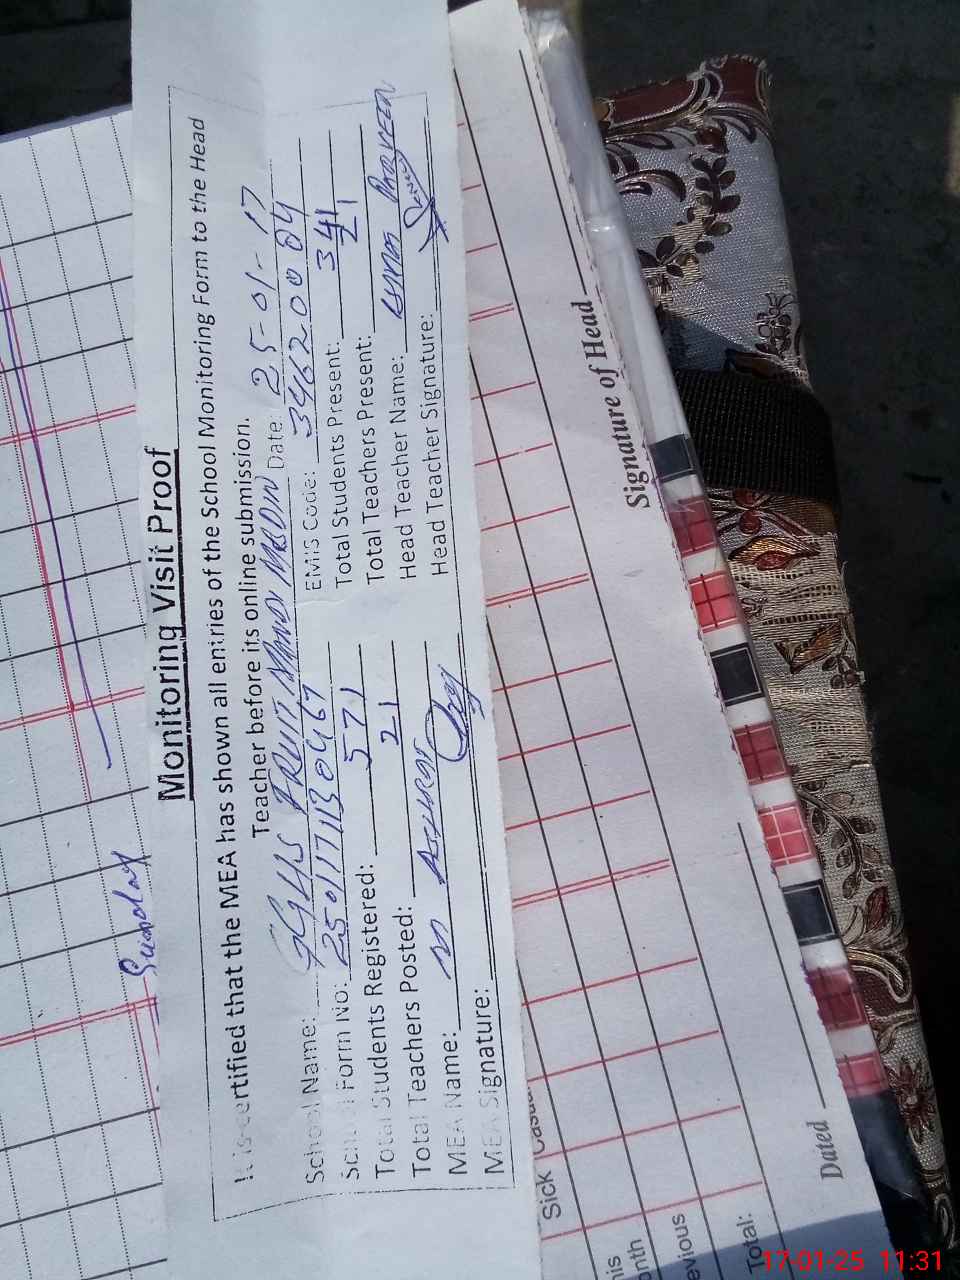 Monitoring Visit Proof
It is certified that the MEA has shown all entries of the School Monitoring Form to the Head
Teacher before its online submission.
School Name: GGHS FRUIT MANDI Date: 25-01-17
School Form No: EMIS Code: 34620004
Total Students Registered: 571 Total Students Present: 341
Total Teachers Posted: 21 Total Teachers Present: 21
MEA Name: M Head Teacher Name: PARVEEN
MEA Signature: Head Teacher Signature:
Sunday
Sick Casual
Total:
Dated
Signature of Head
17-01-25 11:31